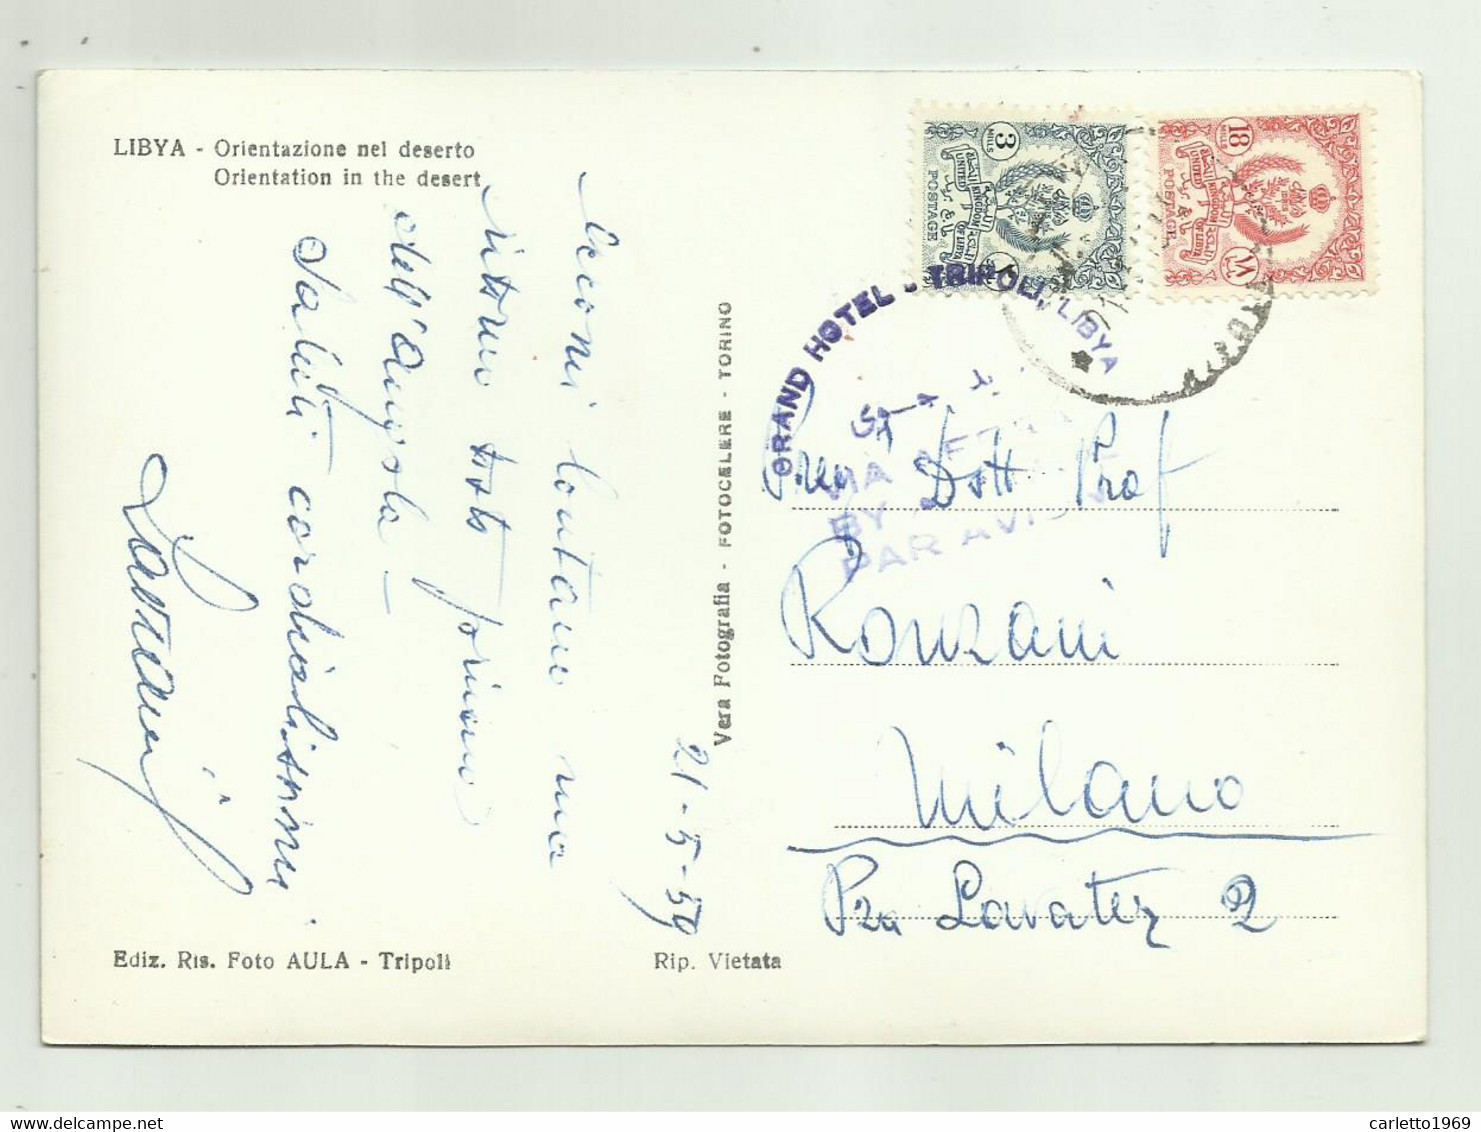 LIBYA - Orientazione nel deserto
Orientation in the desert
eccomi lontano ma
ritorno tosto prima
dell'angola -
Saluti cordialissimi
21-5-59
Ediz. Ris. Foto AULA - Tripoli
Rip. Vietata
Vera Fotografia - FOTOCELERE - TORINO
3
MILLS
UNITED KINGDOM OF LIBYA
POSTAGE
18
MILLS
UNITED KINGDOM OF LIBYA
POSTAGE
GRAND HOTEL - TRIPOLI, LIBYA
VIA AEREA
BY
PAR AVION
Dott Prof
Ronzani
Milano
Pza Lavater 2
carletto1969